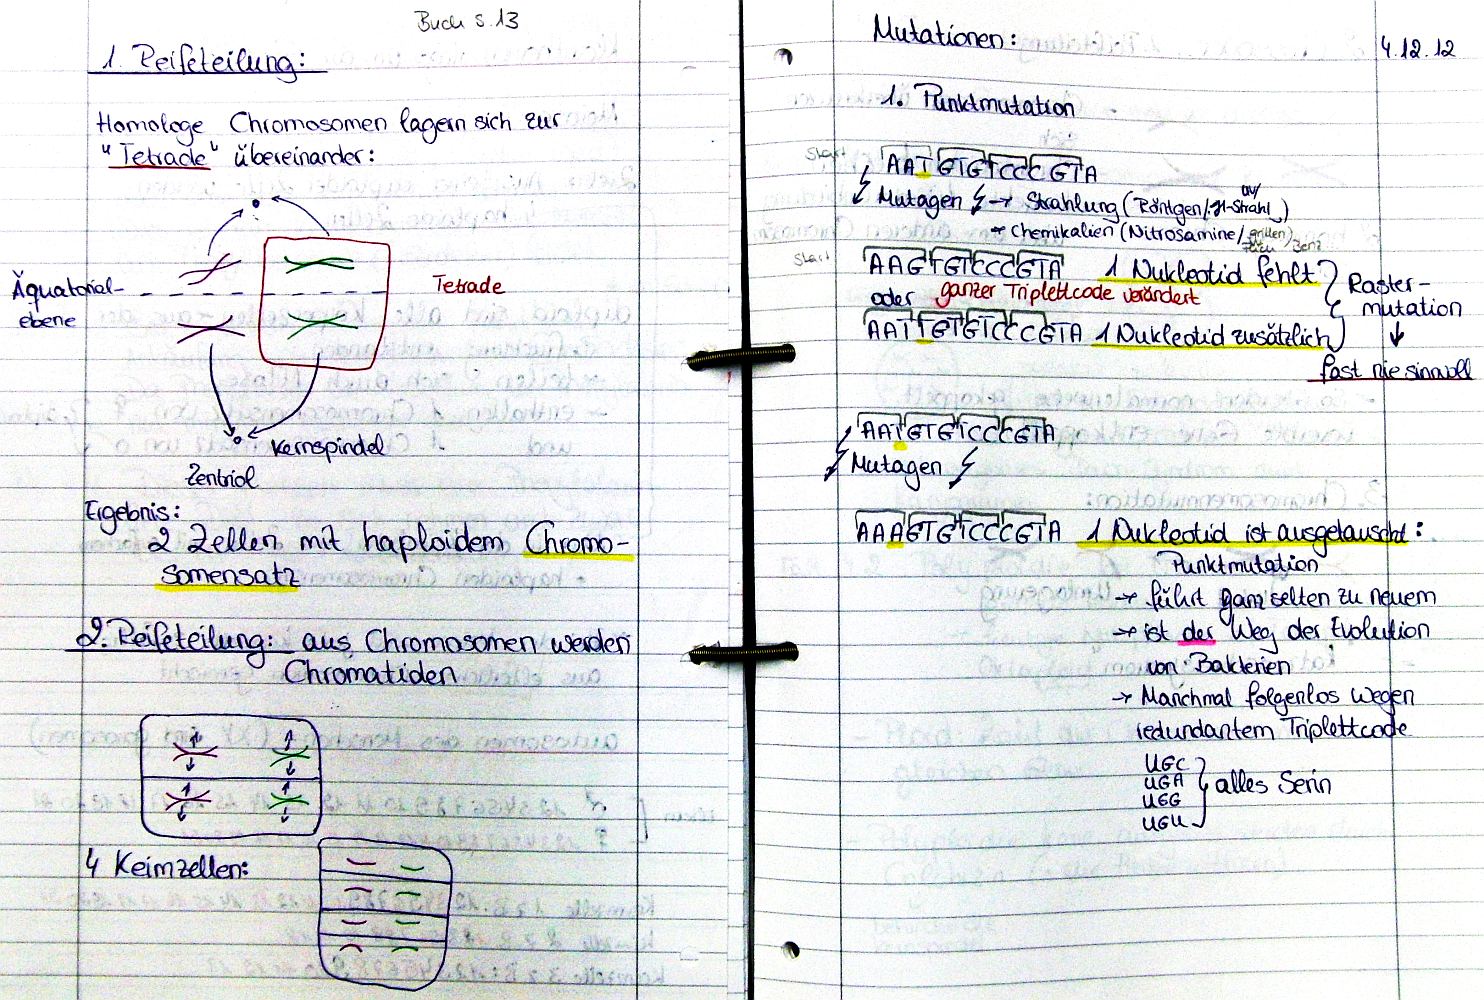 Buch S. 13
1. Reifeteilung:
Homologe Chromosomen lagern sich zur
"Tetrade" übereinander:
Äquatorial-
ebene
Tetrade
Kernspindel
Zentriol
Ergebnis:
2 Zellen mit haploidem Chromo-
somensatz
2. Reifeteilung: aus Chromosomen werden
Chromatiden
4 Keimzellen:
Mutationen:
4.12.12
1. Punktmutation
Start
AATGTGTCCCGTA
Mutagen → Strahlung (Röntgen/
UV
-Strahl)
→ Chemikalien (Nitrosamine/
grillen)
Start
AAGTGTCCCGTA 1 Nukleotid fehlt
oder ganzer Triplettcode verändert
AATTGTGTCCCGTA 1 Nukleotid zusätzlich
Raster-
mutation
↓
fast nie sinnvoll
AATGTGTCCCGTA
Mutagen
AAAGTGTCCCGTA 1 Nukleotid ist ausgetauscht:
Punktmutation
→ führt ganz selten zu neuem
→ ist der Weg der Evolution
von Bakterien
→ Manchmal folgenlos wegen
redundantem Triplettcode
UGC
UGA
UGG
UGU
alles Serin